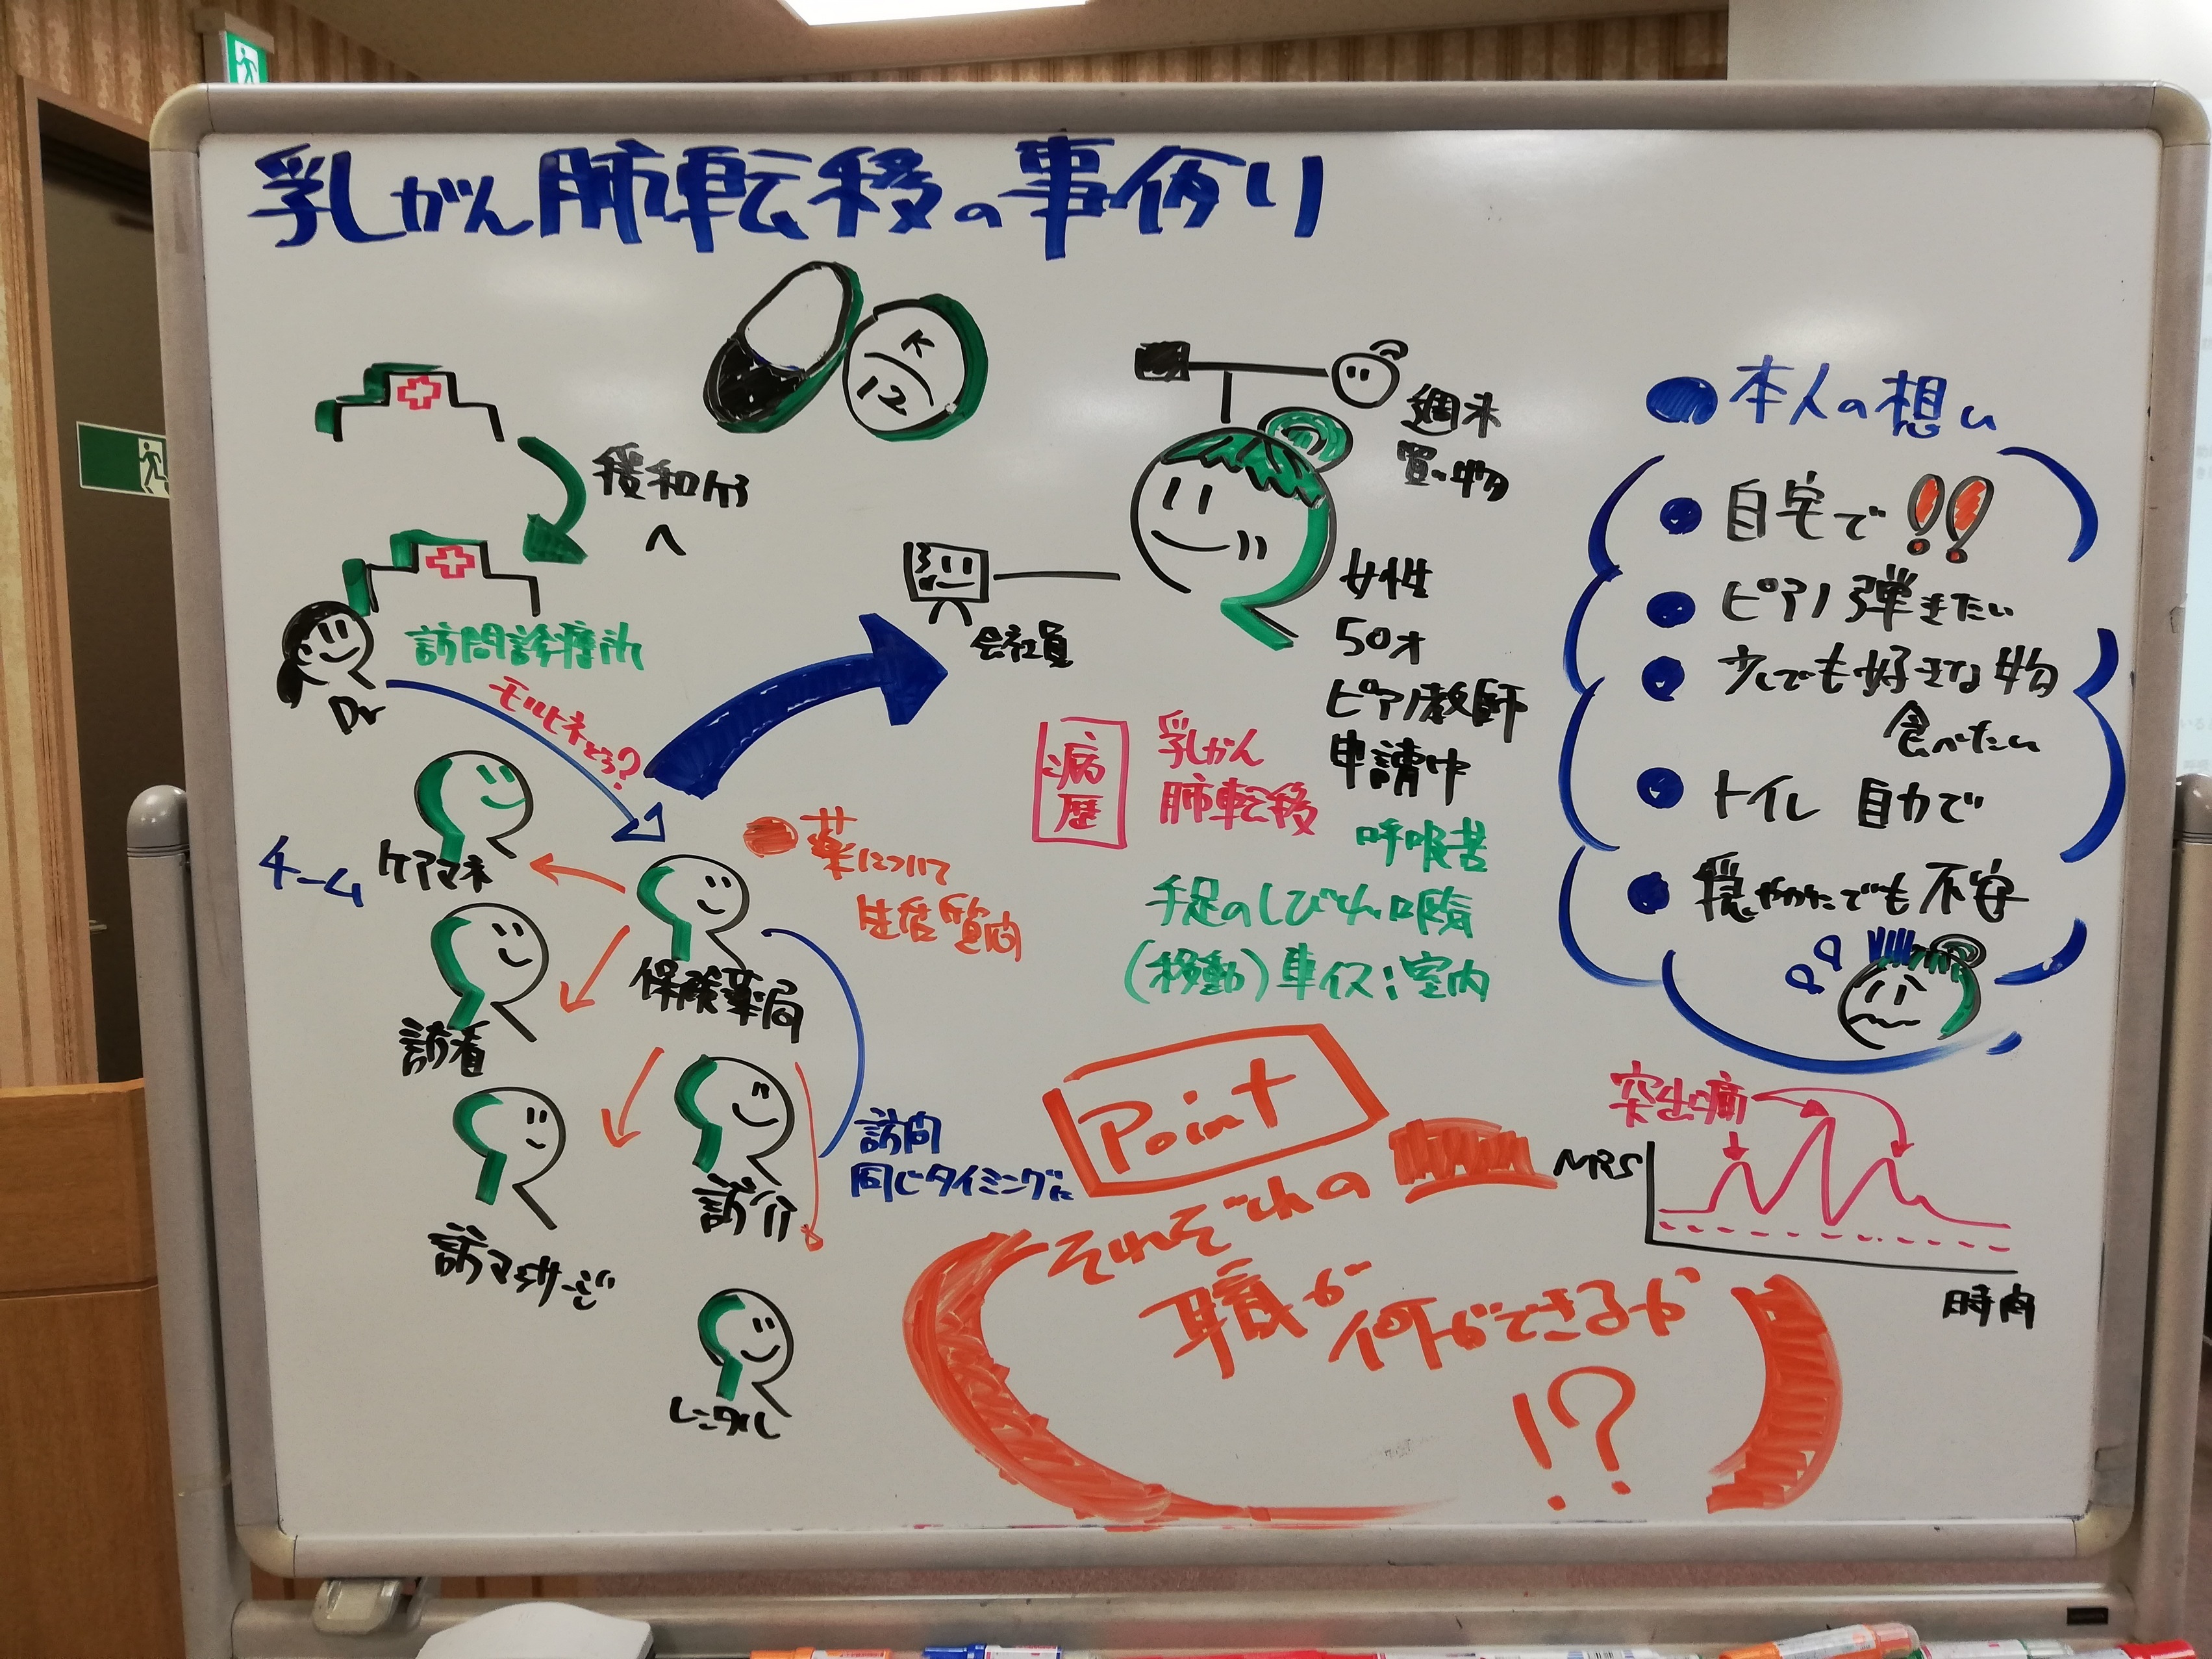 乳がん肺転移の事例
K
12
緩和ケア
へ
訪問診療所
Dr
モルヒネどう?
チーム
ケアマネ
訪看
訪マッサージ
保険薬局
訪介
レンタル
薬について
生活質問
訪問
同じタイミングに
会社員
週末
買い物
女性
50才
ピアノ教師
申請中
病歴
乳がん
肺転移
呼吸苦
手足のしびれ
(移動)車イス:室内
本人の想い
自宅で!!
ピアノ弾きたい
少しでも好きな物
食べたい
トイレ 自力で
穏やかだでも不安
突出痛
NRS
時間
Point
それぞれの
職が何ができるか
!?